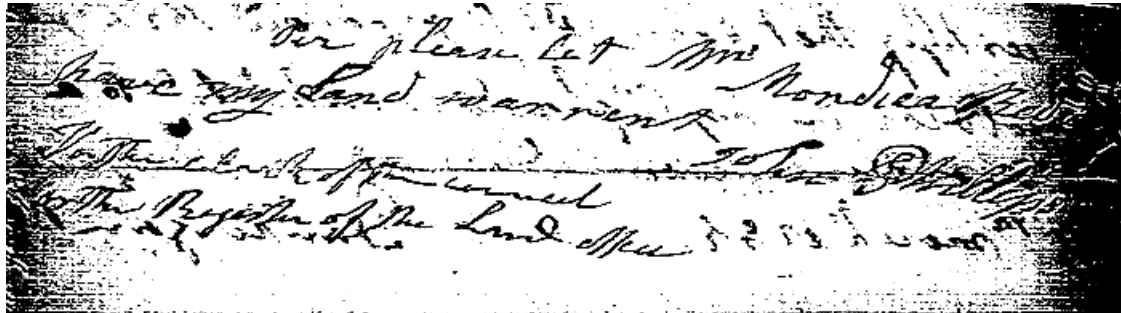 Sir please let Mr
Mondica
have my Land warrent
John Phillips
To the clerk of the council
or the Register of the Land office